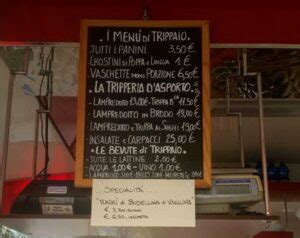 . I MENÙ DI TRIPPAIO.
TUTTI I PANINI 3,50€
CROSTINI DI POPPA E LINGUA 1 €
VASCHETTE MONO PORZIONE 6,50€
. LA TRIPPERIA D'ASPORTO.
LAMPREDOTTO 13,00€ - TRIPPA 11,50
LAMPREDOTTO IN BRODO 19,00
LAMPREDOTTO E TRIPPA IN SUGHI 19,00
INSALATE E CARPACCI 25,00
. LE BEVUTE DI TRIPPAIO.
TUTTE LE LATTINE 2.00€
ACQUA 1.00€ - VINO 1.00€
SPECIALITÀ
"RAGÙ" DI
€ 3,50
€ 6,50